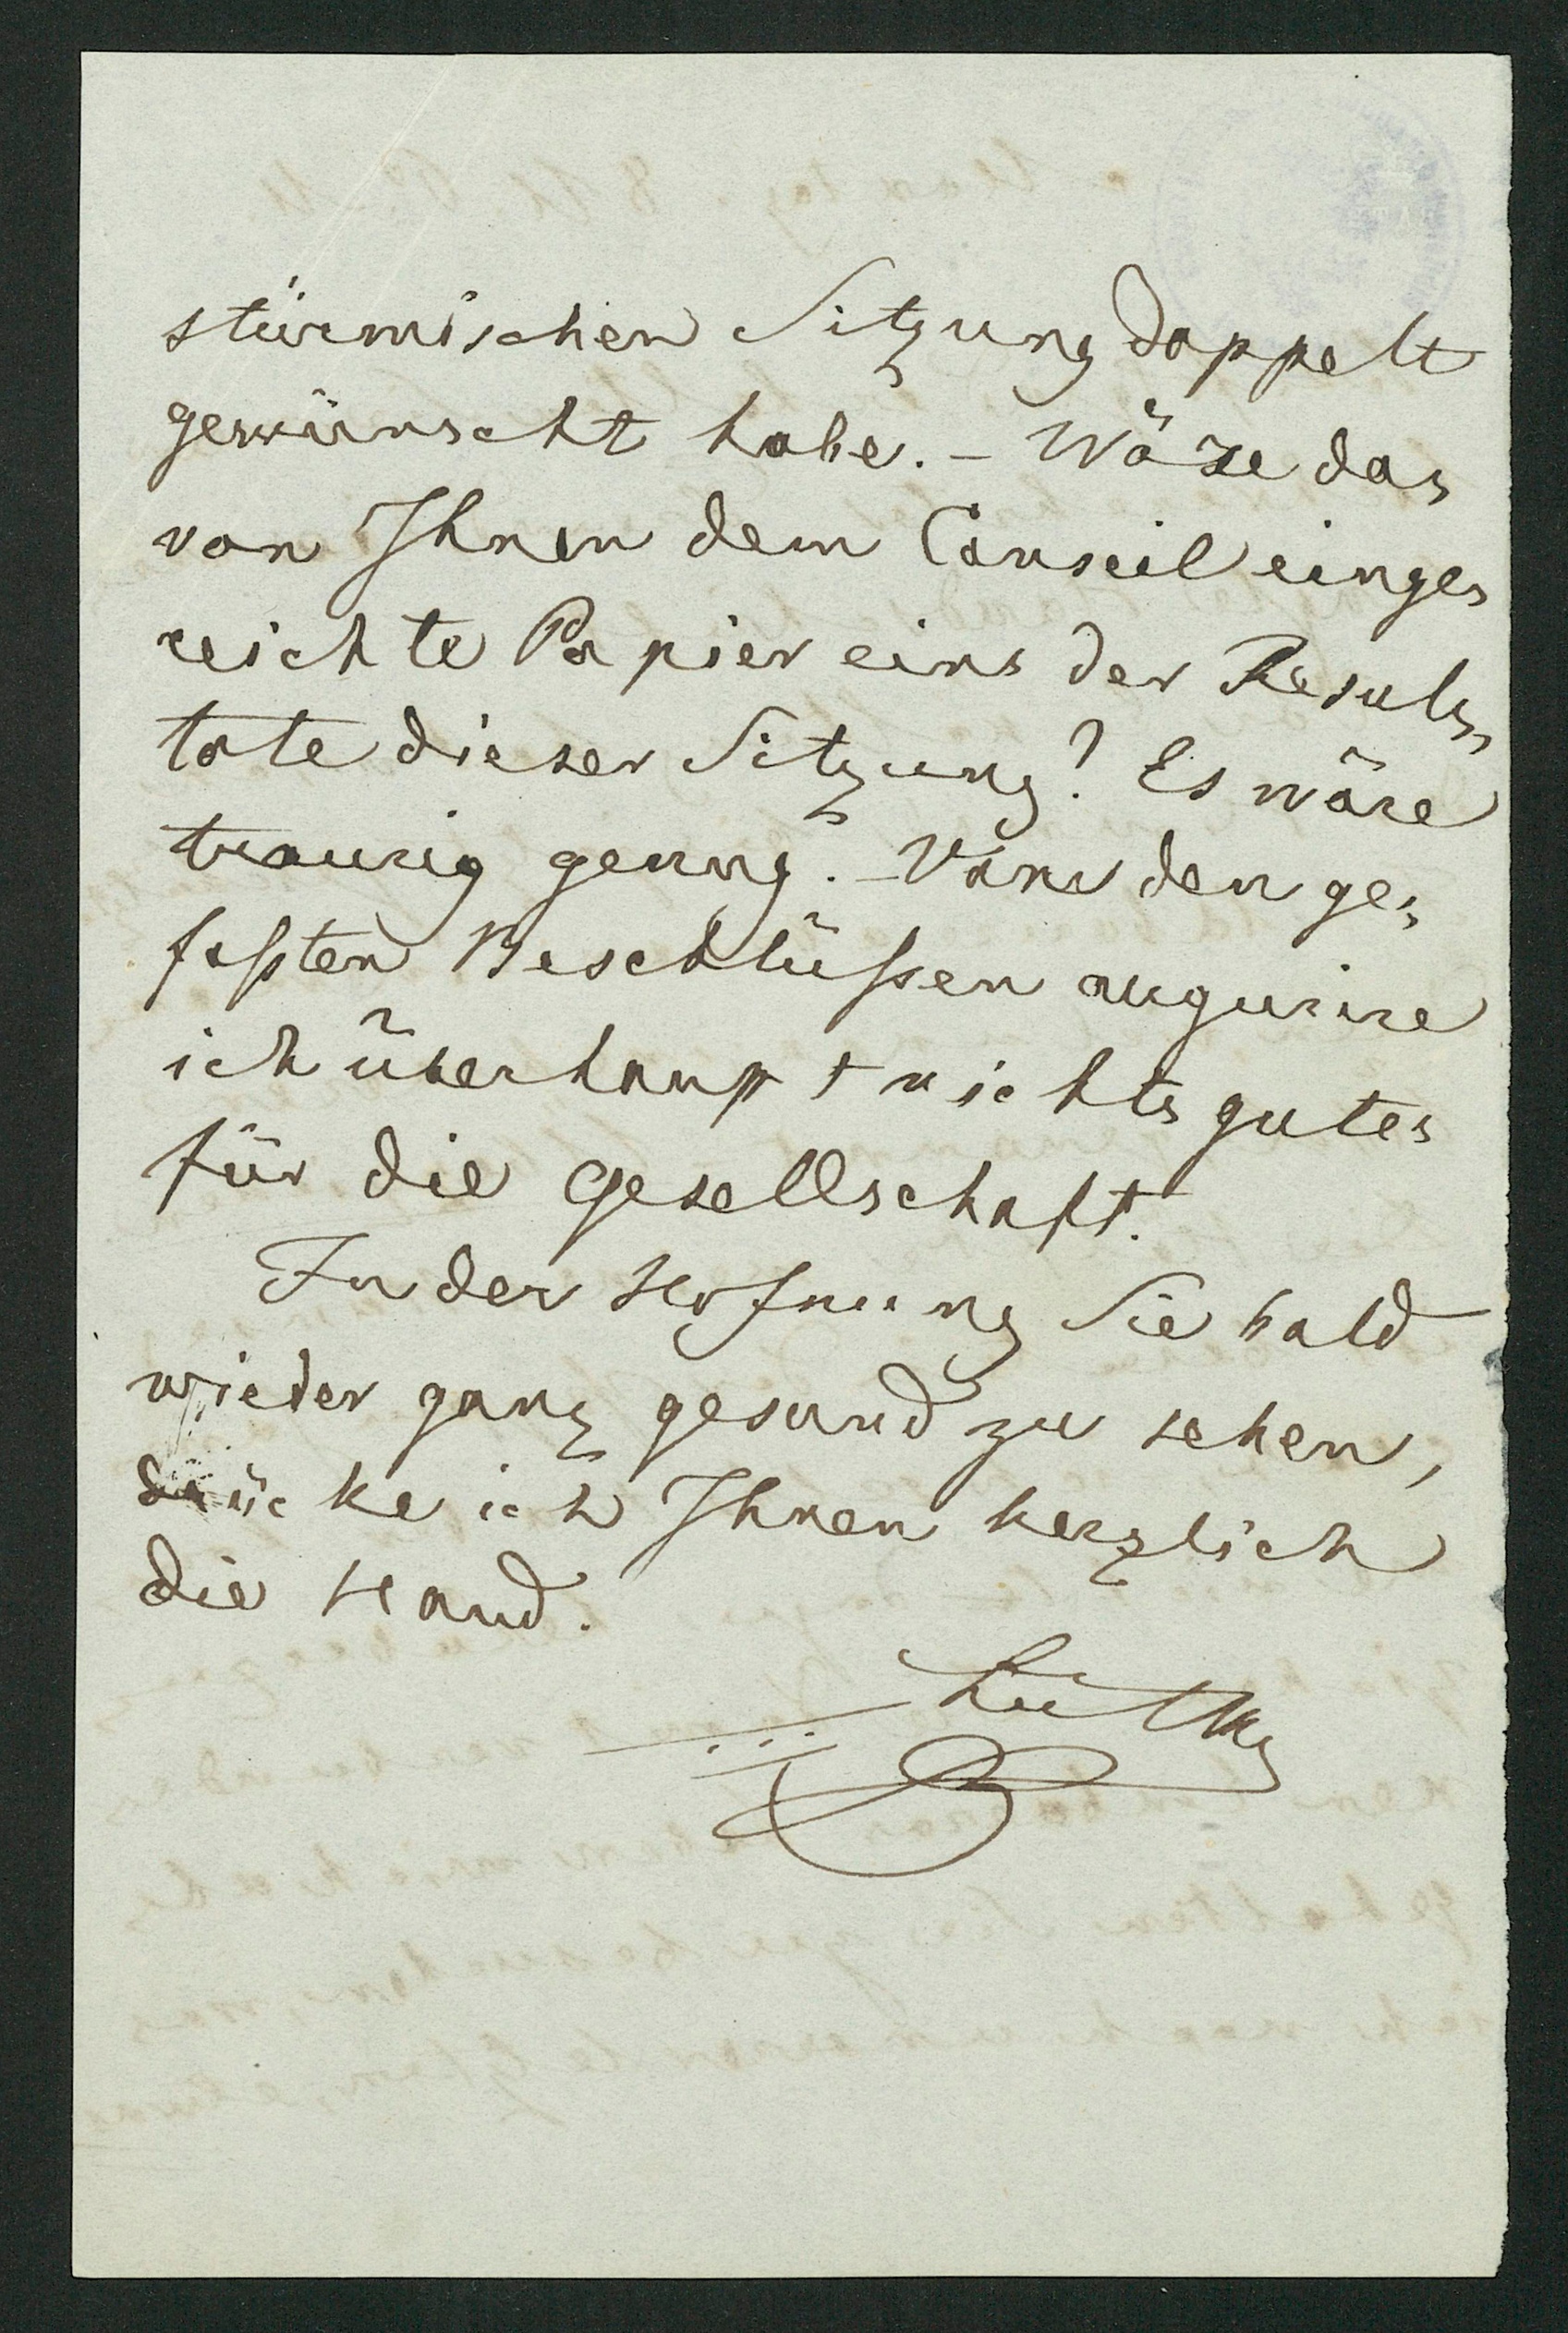 stürmischen Sitzung doppelt
gewünscht habe. – Wäre das
von Ihnen dem Conseil einge=
reichte Papier eins der Resul=
tate dieser Sitzung? Es wäre
traurig genug. – Von den ge=
faßten Beschlüßen augurire
ich überhaupt nichts gutes
für die Gesellschaft.
In der Hofnung Sie bald
wieder ganz gesund zu sehen,
drücke ich Ihnen herzlich
die Hand.
Lütke